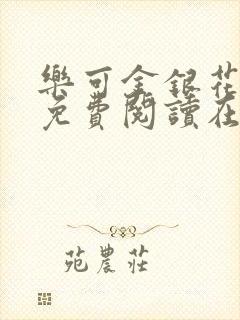 樂可金銀花
免費閱讀在
苑農莊